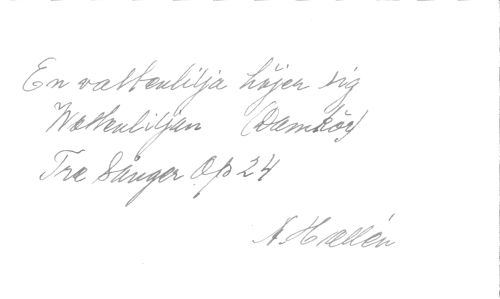 En vattenlilja höjer sig
Wattenliljan (Damkör)
Tre Sånger Op 24
A Hallén